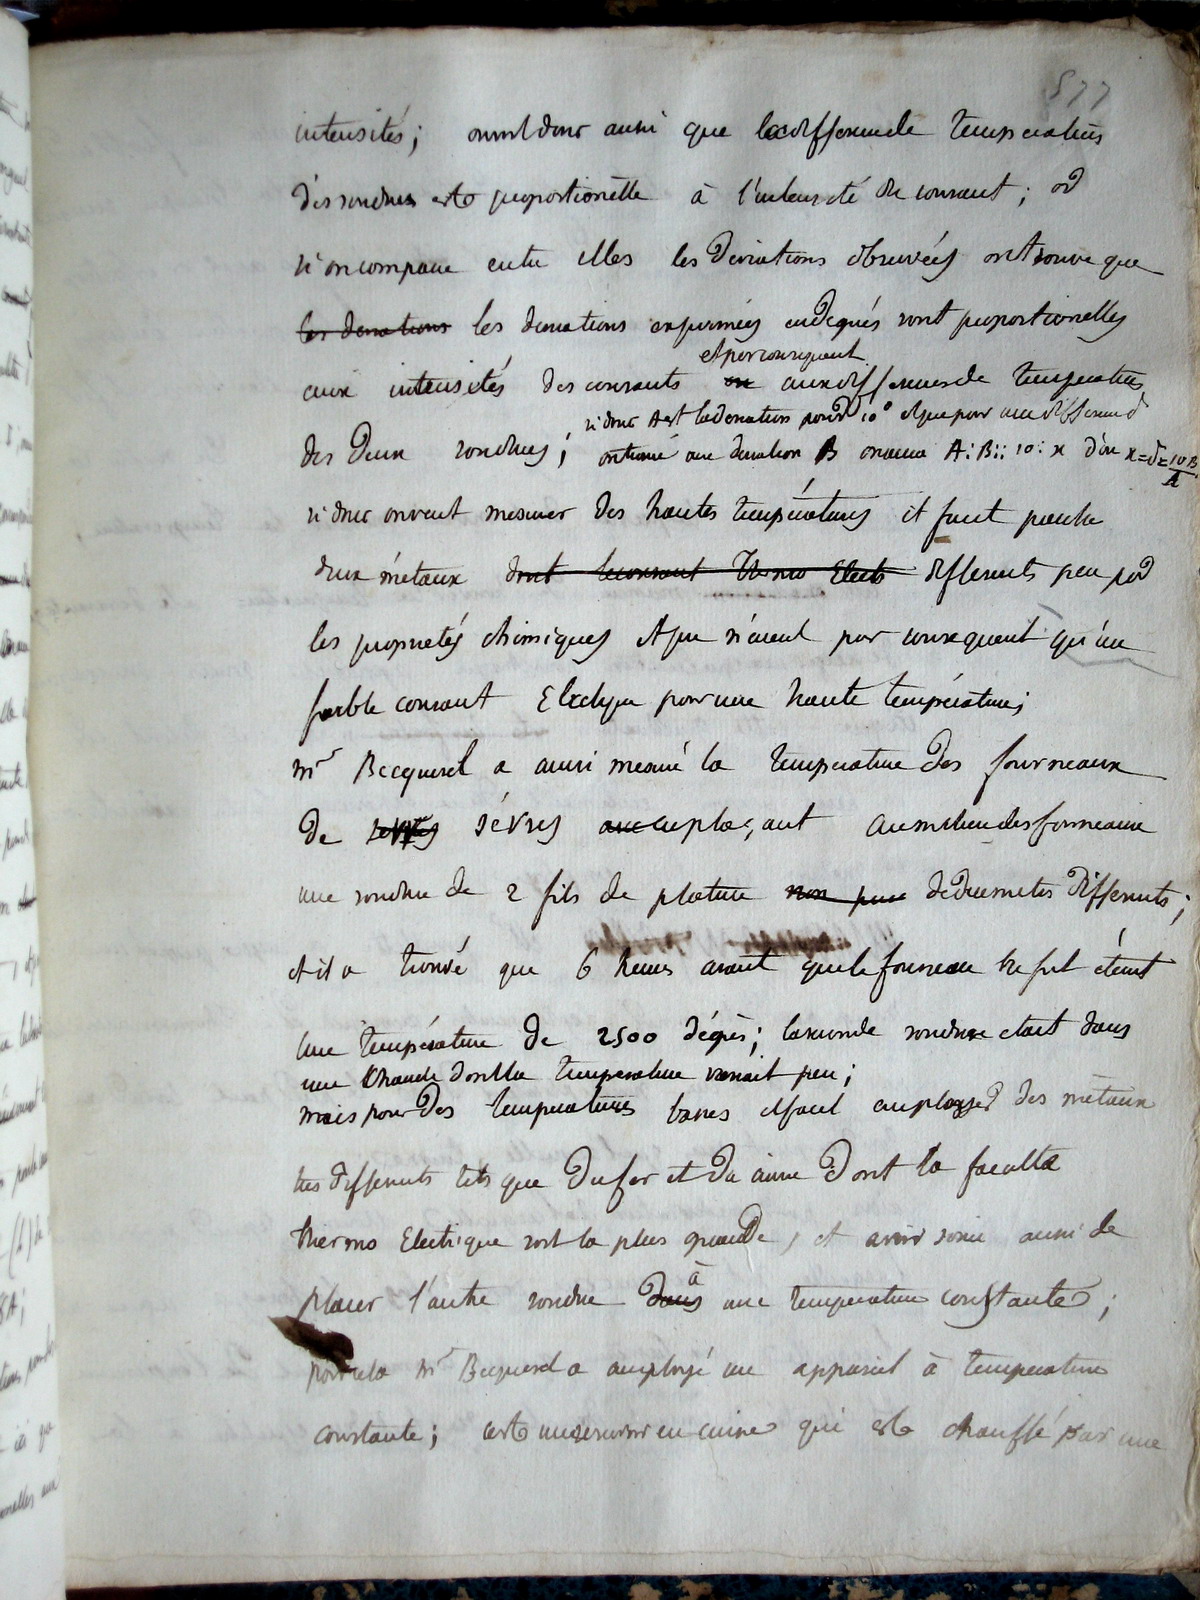 577
intensités; on voit donc aussi que la différence de températures
des soudures est proportionelle à l'intensité du courant; or
si on compare entre elles les déviations observées on trouve que
les deviations les deviations exprimées en degrés sont proportionelles
et par consequent
aux intensités des courants ou aux differences de temperatures
si donc A est la deviation pour 10° et que pour une différence δ
des deux soudures; on trouve une deviation B on aura A:B::10:x d'où x=δ=10B/A
si donc on veut mesurer des hautes températures il faut prendre
deux métaux dont le courant thermo Elect differents peu par
les proprietés chimiques et qui n'aient par consequent qu'un
faible courant Electrique pour une haute température;
mr Becquerel a aussi mesuré la temperature des fourneaux
de sevres sévres en plaçant au milieu des fourneaux
une soudure de 2 fils de platine non pur de diametres différents;
et il a trouvé que 6 heures avant que le fourneau ne fut éteint
une température de 2500 dégrés; la seconde soudure etait dans
une chambre dont la temperature variait peu;
mais pour des temperatures basses il faut employer des métaux
très différents tels que du fer et du cuivre dont la faculté
thermo Electrique soit la plus grande, et avoir soin aussi de
à
placer l'autre soudure dans une temperature constante;
pour cela mr Becquerel a employé un appareil à temperature
constante; c'est un reservoir en cuivre qui est chauffé par une